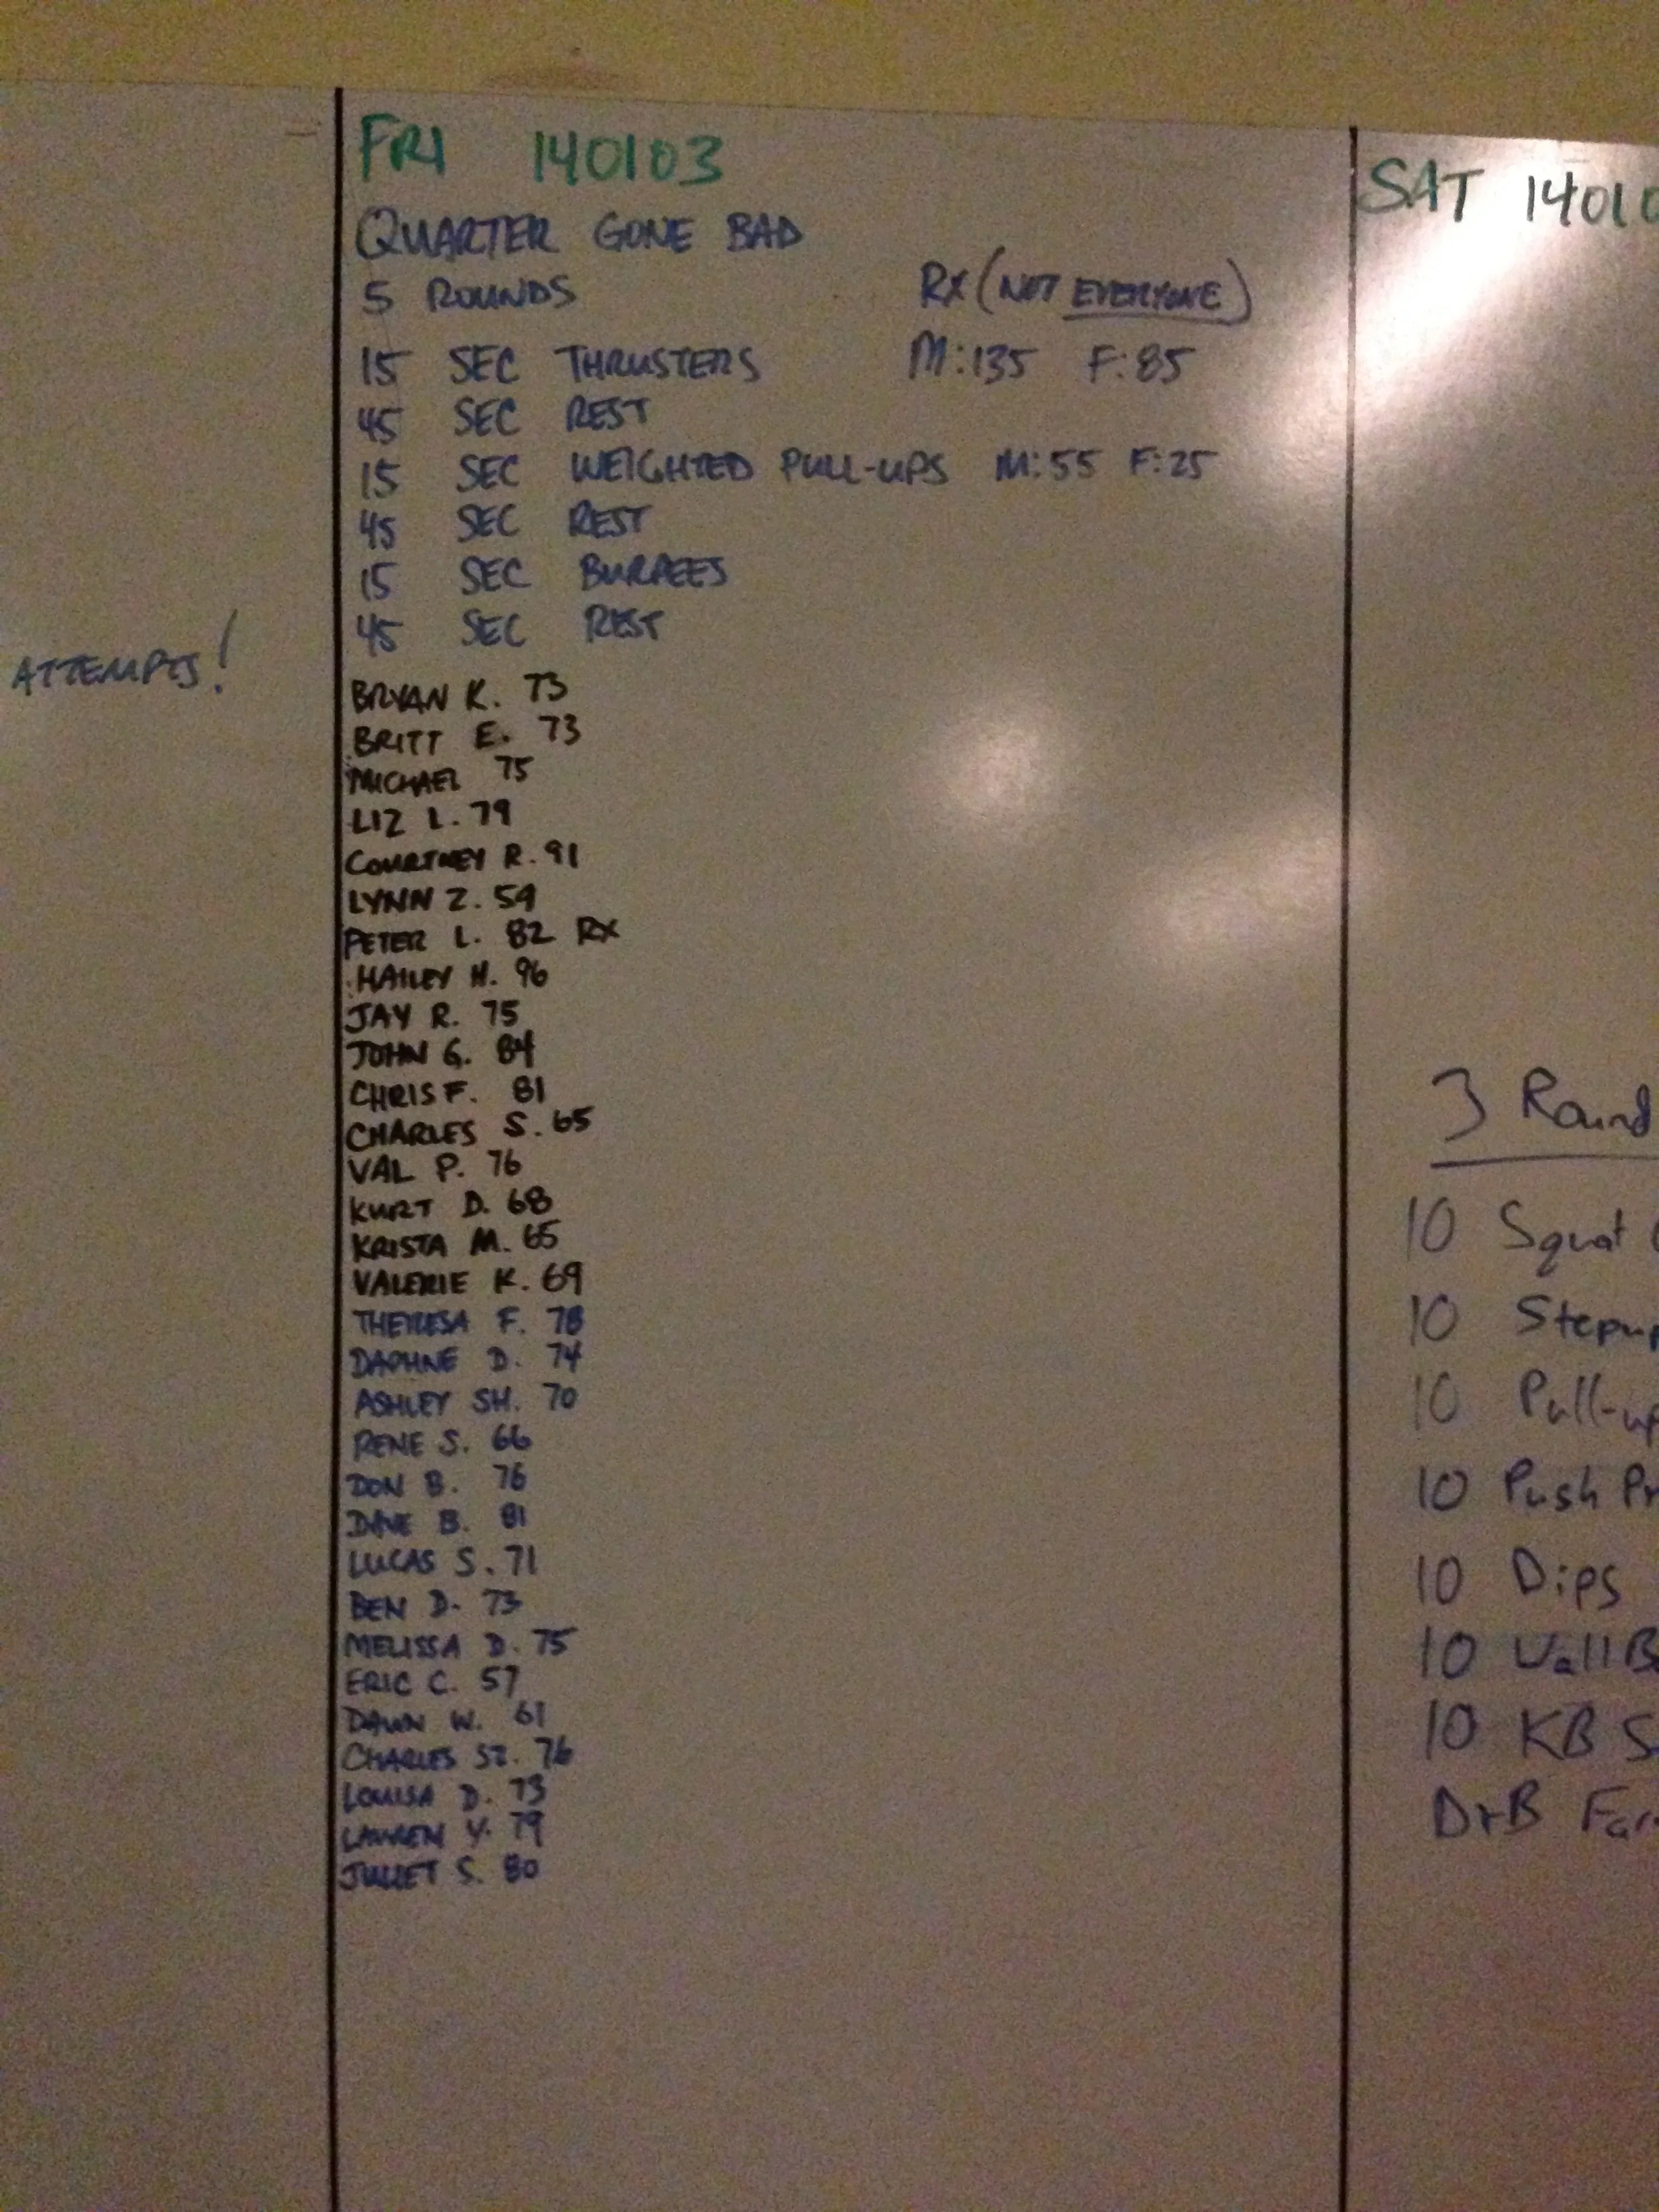 ATTEMPTS!
FRI 140103
QUARTER GONE BAD
5 ROUNDS RX (NOT EVERYONE)
15 SEC THRUSTERS M:135 F:85
45 SEC REST
15 SEC WEIGHTED PULL-UPS M:55 F:25
45 SEC REST
15 SEC BURPEES
45 SEC REST
BRYAN K. 73
BRITT E. 73
MICHAEL 75
LIZ L. 79
COURTNEY R. 91
LYNN Z. 59
PETER L. 82 RX
HAILEY H. 96
JAY R. 75
JOHN G. 84
CHRIS F. 81
CHARLES S. 65
VAL P. 76
KURT D. 68
KRISTA M. 65
VALERIE K. 69
THERESA F. 78
DAPHNE D. 74
ASHLEY SH. 70
RENE S. 66
DON B. 76
DAVE B. 81
LUCAS S. 71
BEN D. 73
MELISSA D. 75
ERIC C. 57
DAWN W. 61
CHARLES SZ. 76
LOUISA D. 73
LAUREN Y. 79
JULIET S. 80
SAT 1401
3 Round
10 Squat
10 Stepup
10 Pull-up
10 Push Pr
10 Dips
10 Wall B
10 KB S
D+B Far